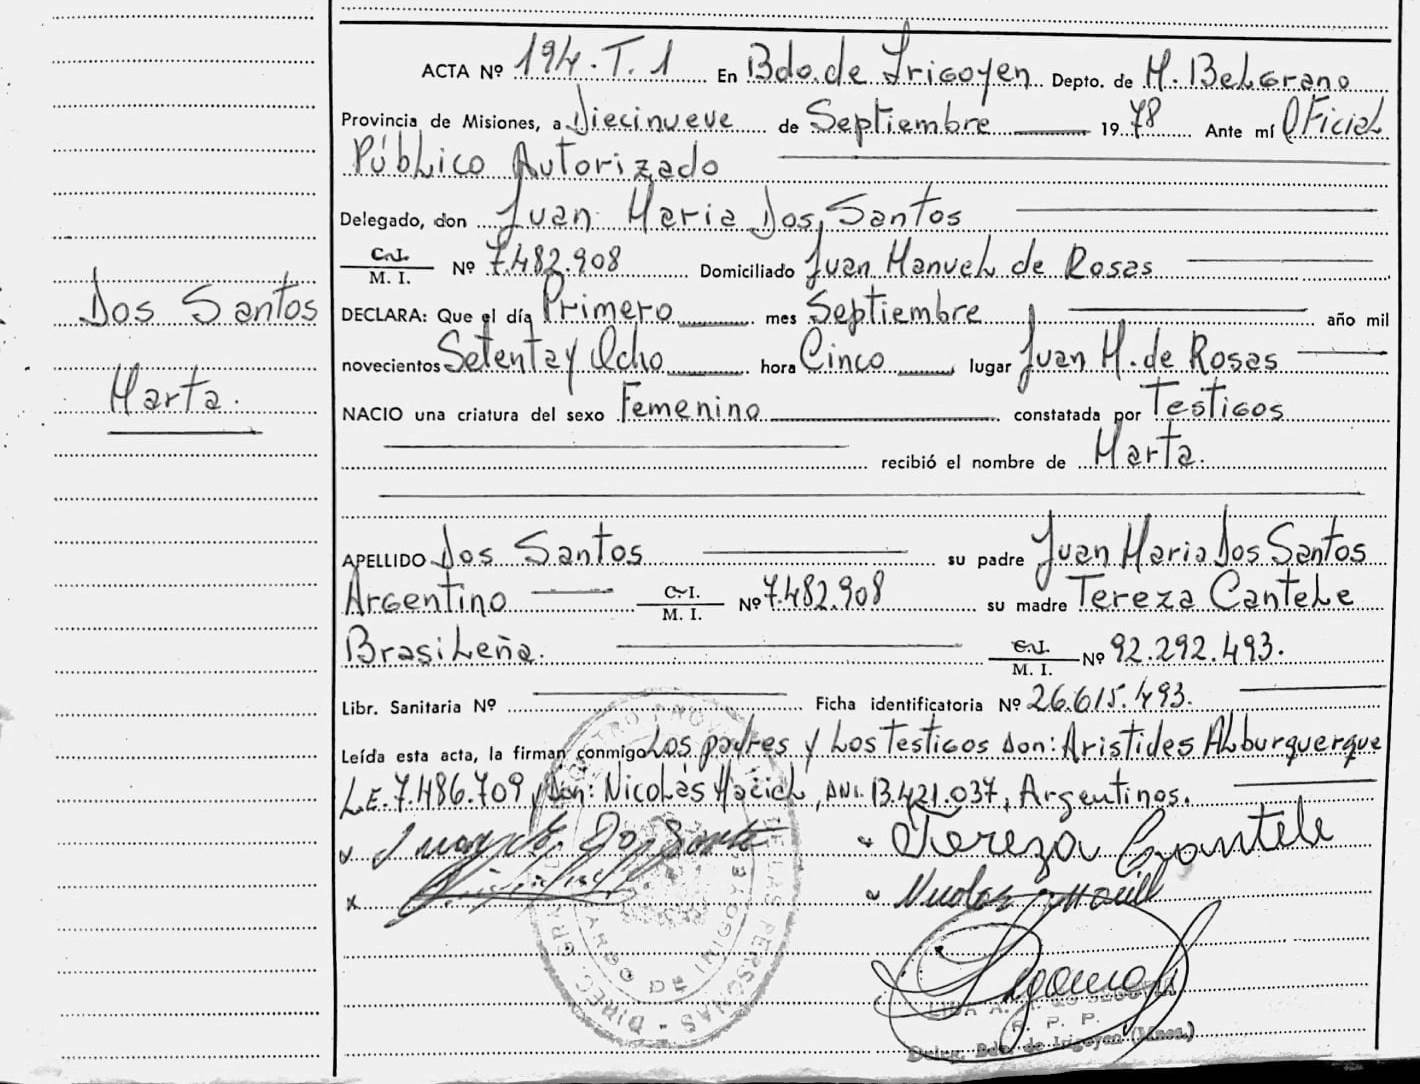 ACTA Nº 194. T. 1 En Bdo. de Irigoyen Depto. de M. Belgrano
Provincia de Misiones, a Diecinueve de Septiembre 1978 Ante mí Oficial
Público Autorizado
Delegado, don Juan Maria Dos Santos
C.I. M. I. Nº 7.482.908 Domiciliado Juan Manuel de Rosas
Dos Santos
DECLARA: Que el día Primero mes Septiembre año mil
novecientos Setenta y Ocho hora Cinco lugar Juan M. de Rosas
Marta.
NACIO una criatura del sexo Femenino constatada por Testigos
recibió el nombre de Marta.
APELLIDO Dos Santos su padre Juan Maria Dos Santos
Argentino C.I. M. I. Nº 7.482.908 su madre Tereza Cantele
Brasileña. C.I. M. I. Nº 92.292.493.
Libr. Sanitaria Nº Ficha identificatoria Nº 26.615.493.
Leída esta acta, la firman conmigo Los padres y Los Testigos son: Aristides Alburquerque
L.E. 7.486.709, Nicolás, DNI. 13.421.037, Argentinos.
Dos Santos Tereza Cantele
Nicolas
DE LAS PERSONAS - DIREC. GRAL.
R. P. P.
Deleg. Bdo. de Irigoyen (Mnes.)